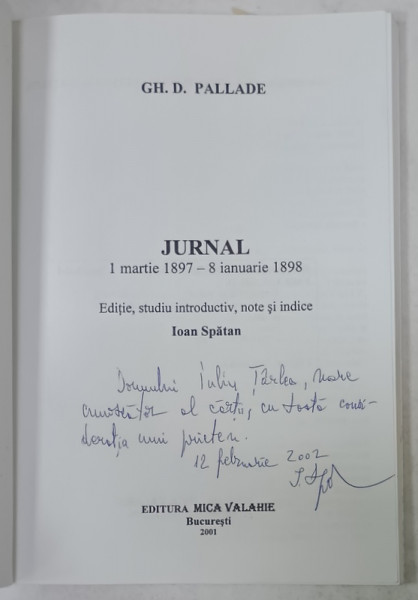 GH. D. PALLADE
JURNAL
1 martie 1897 – 8 ianuarie 1898
Ediție, studiu introductiv, note și indice
Ioan Spătan
Domnului Iuliu Țârlea, mare
cunoscător al cărții, cu toată consi-
derația unui prieten.
12 februarie 2002
EDITURA MICA VALAHIE
București
2001